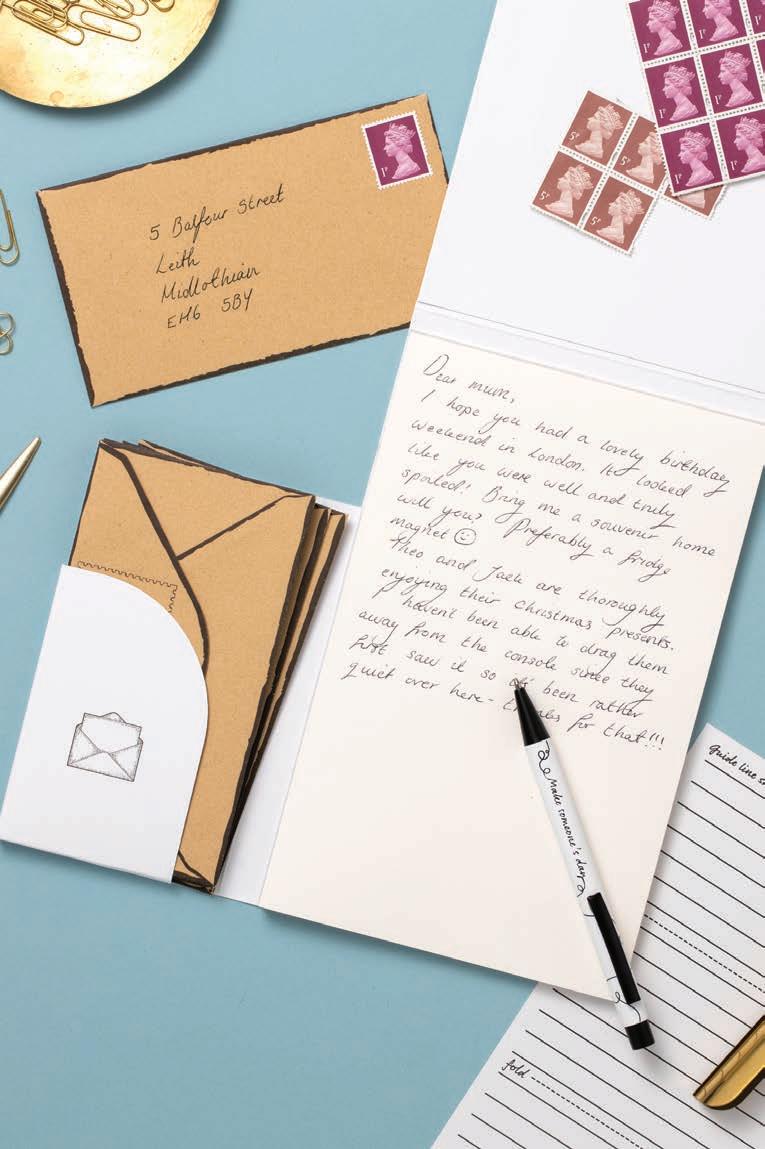 5 Balfour Street
Leith
Midlothian
EH6 5BY
1P
1P
1P
1P
1P
5P
5P
5P
5P
Dear mum,
I hope you had a lovely birthday
weekend in London. It looked
like you were well and truly
spoiled! Bring me a souvenir home
will you? Preferably a fridge
magnet ☺
Theo and Jack are thoroughly
enjoying their Christmas presents.
I haven't been able to drag them
away from the console since they
first saw it so it's been rather
quiet over here - thanks for that!!!
Make someone's day
guide line
fold